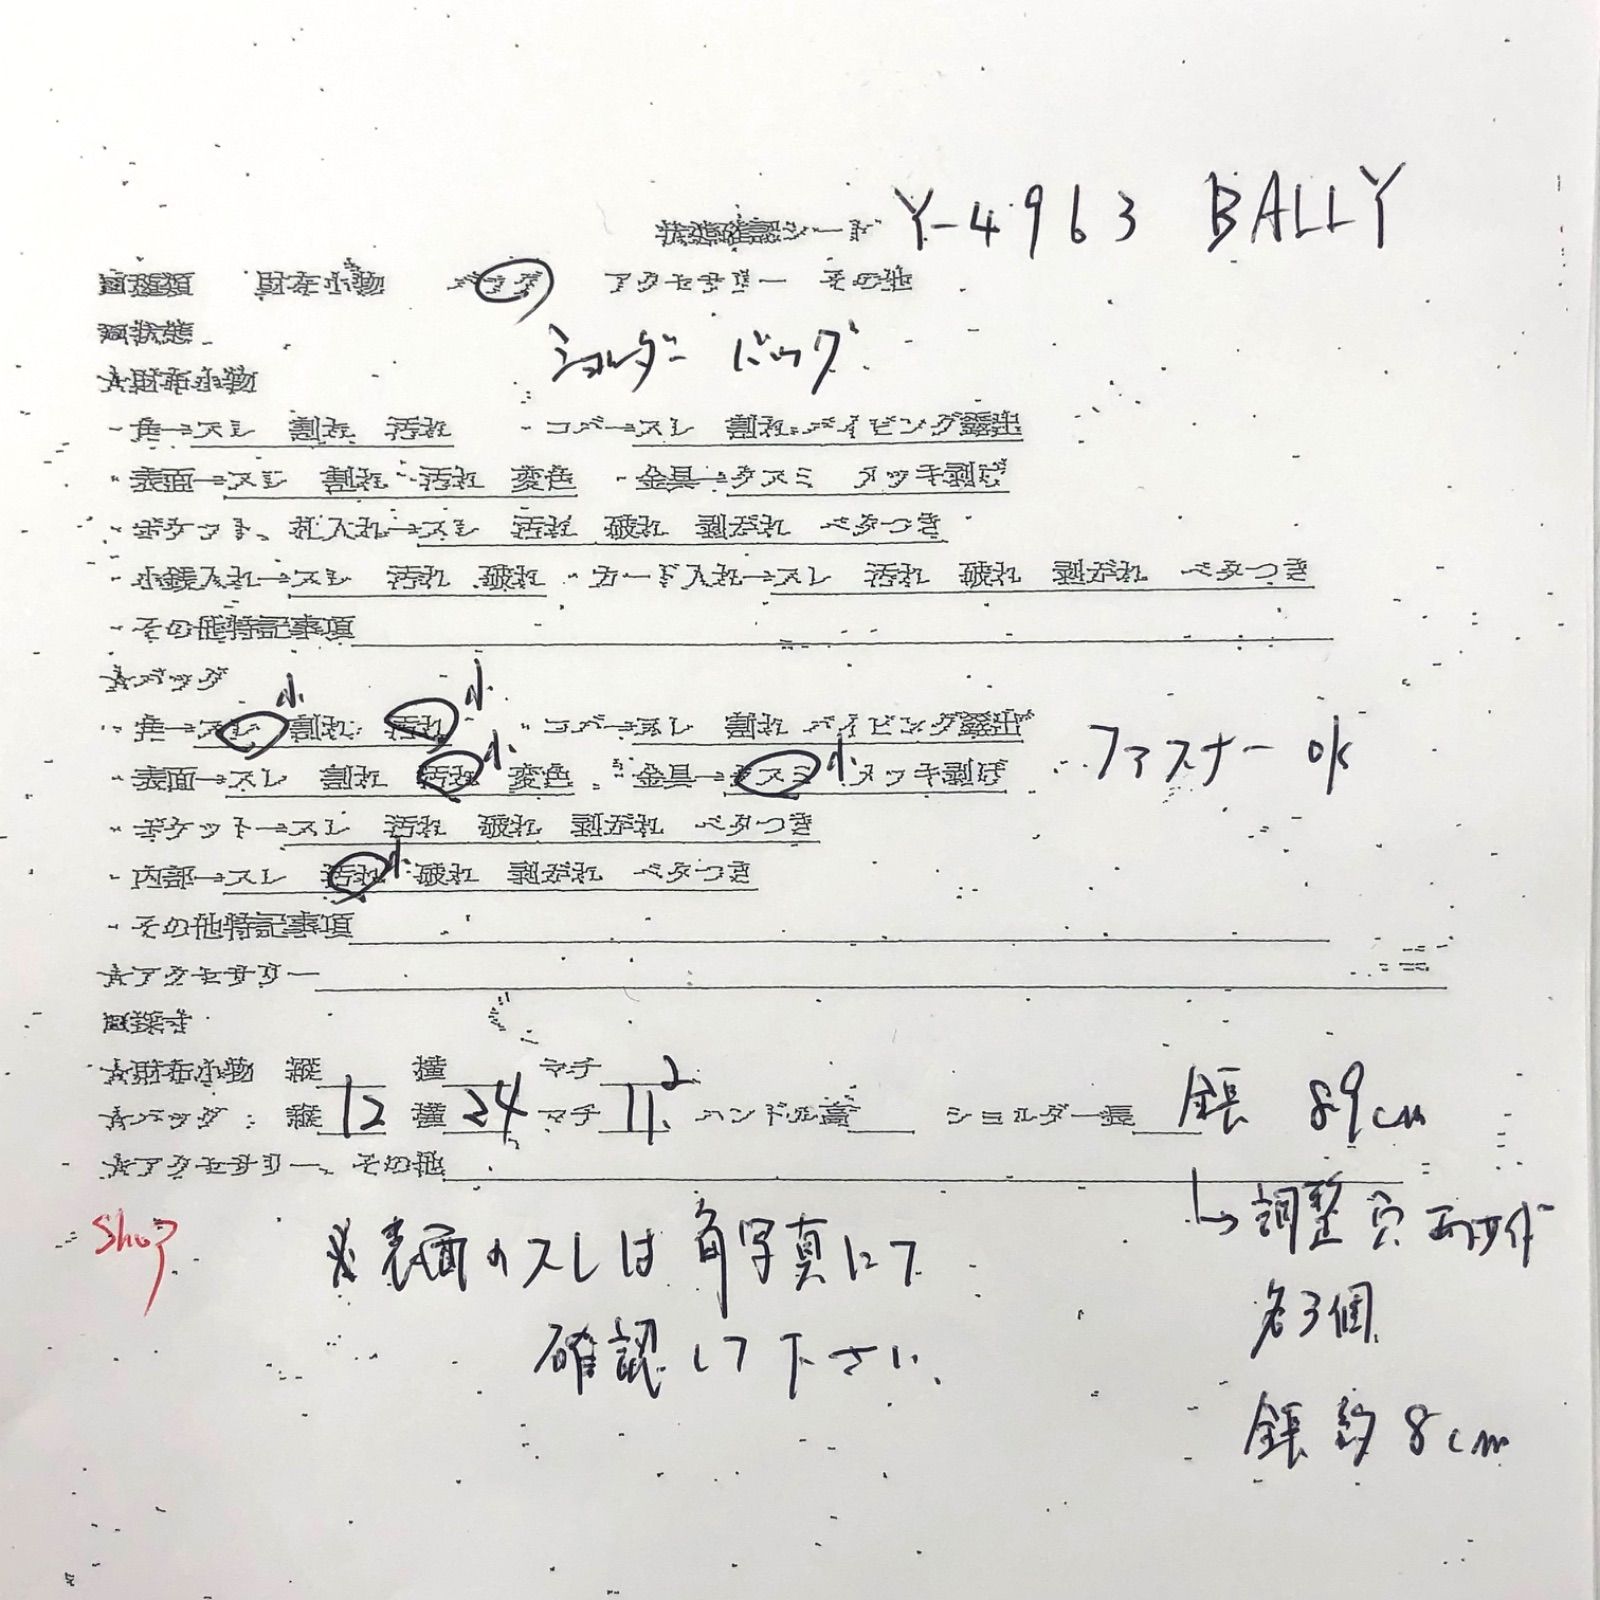 状態確認シート Y-4963 BALLY
□種類 財布小物 バッグ アクセサリー その他
□状態
ショルダーバッグ
☆財布小物
・角→スレ 割れ 汚れ ・コバ→スレ 割れ パイピング露出
・表面→スレ 割れ 汚れ 変色 ・金具→クスミ メッキ剥げ
・ポケット、札入れ→スレ 汚れ 破れ 剥がれ ベタつき
・小銭入れ→スレ 汚れ 破れ ・カード入れ→スレ 汚れ 破れ 剥がれ ベタつき
・その他特記事項
☆バッグ
・角→スレ 小 割れ 汚れ 小 ・コバ→スレ 割れ パイピング露出
・表面→スレ 割れ 汚れ 小 変色 ・金具→クスミ 小 メッキ剥げ ファスナー ok
・ポケット→スレ 汚れ 破れ 剥がれ ベタつき
・内部→スレ 汚れ 小 破れ 剥がれ ベタつき
・その他特記事項
☆アクセサリー
□採寸
☆財布小物 縦 横 マチ
☆バッグ:縦 12 横 24 マチ 11.2 ハンドル高 ショルダー長 全長 89cm
☆アクセサリー、その他
↳調整穴
各3個
全長約8cm
Shop
※表面のスレは角写真にて
確認して下さい。